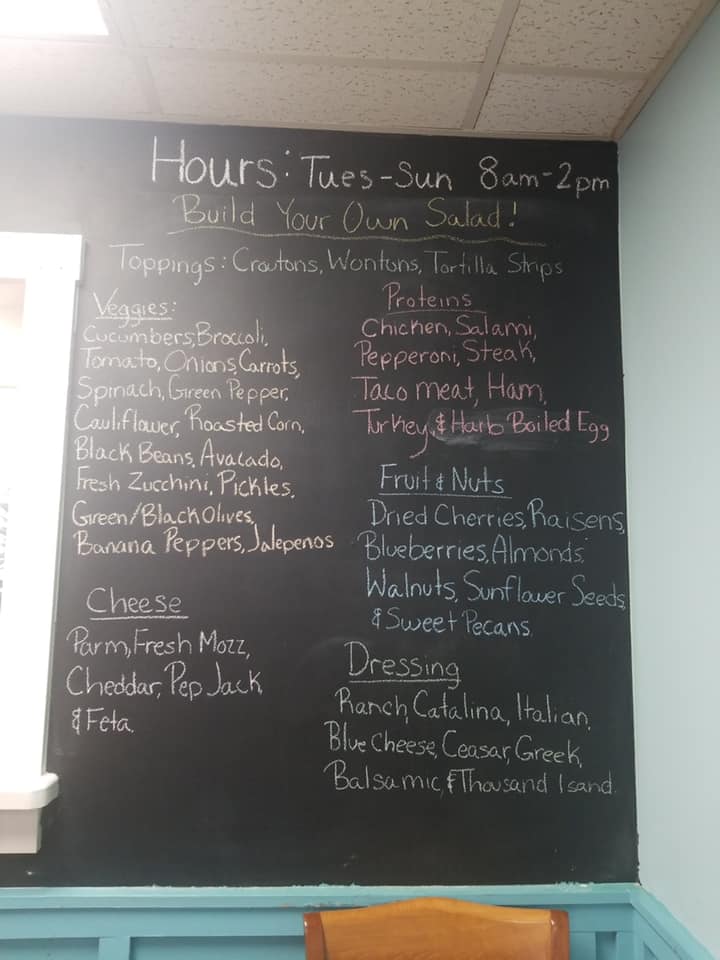 Hours: Tues-Sun 8am-2pm
Build Your Own Salad!
Toppings: Croutons, Wontons, Tortilla Strips
Veggies:
Cucumbers, Broccoli,
Tomato, Onions, Carrots,
Spinach, Green Pepper,
Cauliflower, Roasted Corn,
Black Beans, Avacado,
Fresh Zucchini, Pickles,
Green/Black Olives,
Banana Peppers, Jalepenos
Cheese
Parm, Fresh Mozz,
Cheddar, Pep Jack
& Feta.
Proteins
Chicken, Salami,
Pepperoni, Steak,
Taco meat, Ham,
Turkey, & Harb Boiled Egg
Fruit & Nuts
Dried Cherries, Raisens,
Blueberries, Almonds,
Walnuts, Sunflower Seeds,
& Sweet Pecans.
Dressing
Ranch, Catalina, Italian,
Blue Cheese, Ceasar, Greek,
Balsamic, & Thousand Isand.